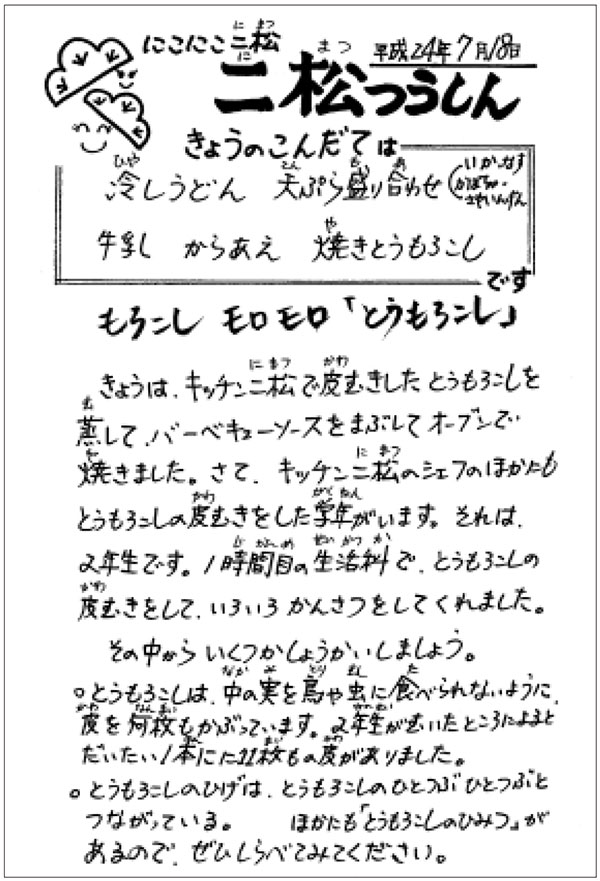 にこにこ二松
平成24年7月18日
二松つうしん
きょうのこんだては
冷しうどん 天ぷら盛り合わせ(いか・なす かぼちゃ・さやいんげん
牛乳 からあえ 焼きとうもろこし
です
もろこし モロモロ「とうもろこし」
きょうは、キッチン二松で皮むきしたとうもろこしを
蒸して、バーベキューソースをまぶしてオーブンで
焼きました。さて、キッチン二松のシェフのほかにも
とうもろこしの皮むきをした学年がいます。それは、
2年生です。1時間目の生活科で、とうもろこしの
皮むきをして、いろいろかんさつをしてくれました。
その中からいくつかしょうかいしましょう。
○とうもろこしは、中の実を鳥や虫に食べられないように、
皮を何枚もかぶっています。2年生がむいたところによると
だいたい1本にに11枚もの皮がありました。
○とうもろこしのひげは、とうもろこしのひとつぶひとつぶと
つながっている。 ほかにも「とうもろこしのひみつ」が
あるので、ぜひしらべてみてください。